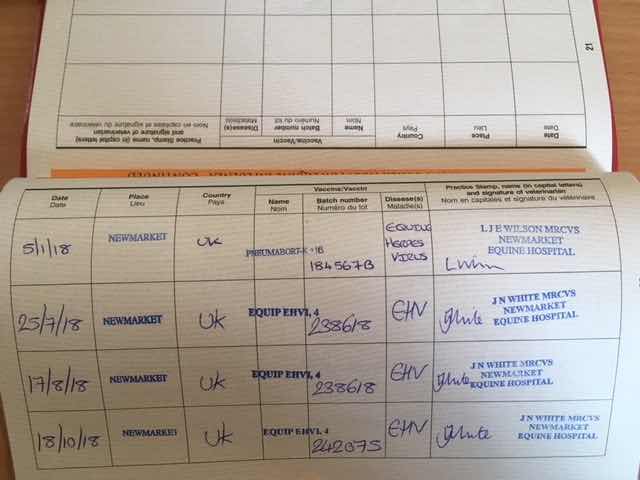 21
Date
Date
Place
Lieu
Country
Pays
Vaccine/Vaccin
Name
Nom
Batch number
Numéro du lot
Disease(s)
Maladie(s)
Practice Stamp, name (in capital letters)
and signature of veterinarian
Nom en capitales et signature du vétérinaire
CONTINUED
Date
Date
Place
Lieu
Country
Pays
Vaccine/Vaccin
Name
Nom
Batch number
Numéro du lot
Disease(s)
Maladie(s)
Practice Stamp, name (in capital letters)
and signature of veterinarian
Nom en capitales et signature du vétérinaire
5/1/18
NEWMARKET
UK
PNEUMABORT-K +1B
184567B
EQUINE
HERPES
VIRUS
L J E WILSON MRCVS
NEWMARKET
EQUINE HOSPITAL
25/7/18
NEWMARKET
UK
EQUIP EHV1, 4
238618
EHV
J N WHITE MRCVS
NEWMARKET
EQUINE HOSPITAL
17/8/18
NEWMARKET
UK
EQUIP EHV1, 4
238618
EHV
J N WHITE MRCVS
NEWMARKET
EQUINE HOSPITAL
18/10/18
NEWMARKET
UK
EQUIP EHV1, 4
242075
EHV
J N WHITE MRCVS
NEWMARKET
EQUINE HOSPITAL